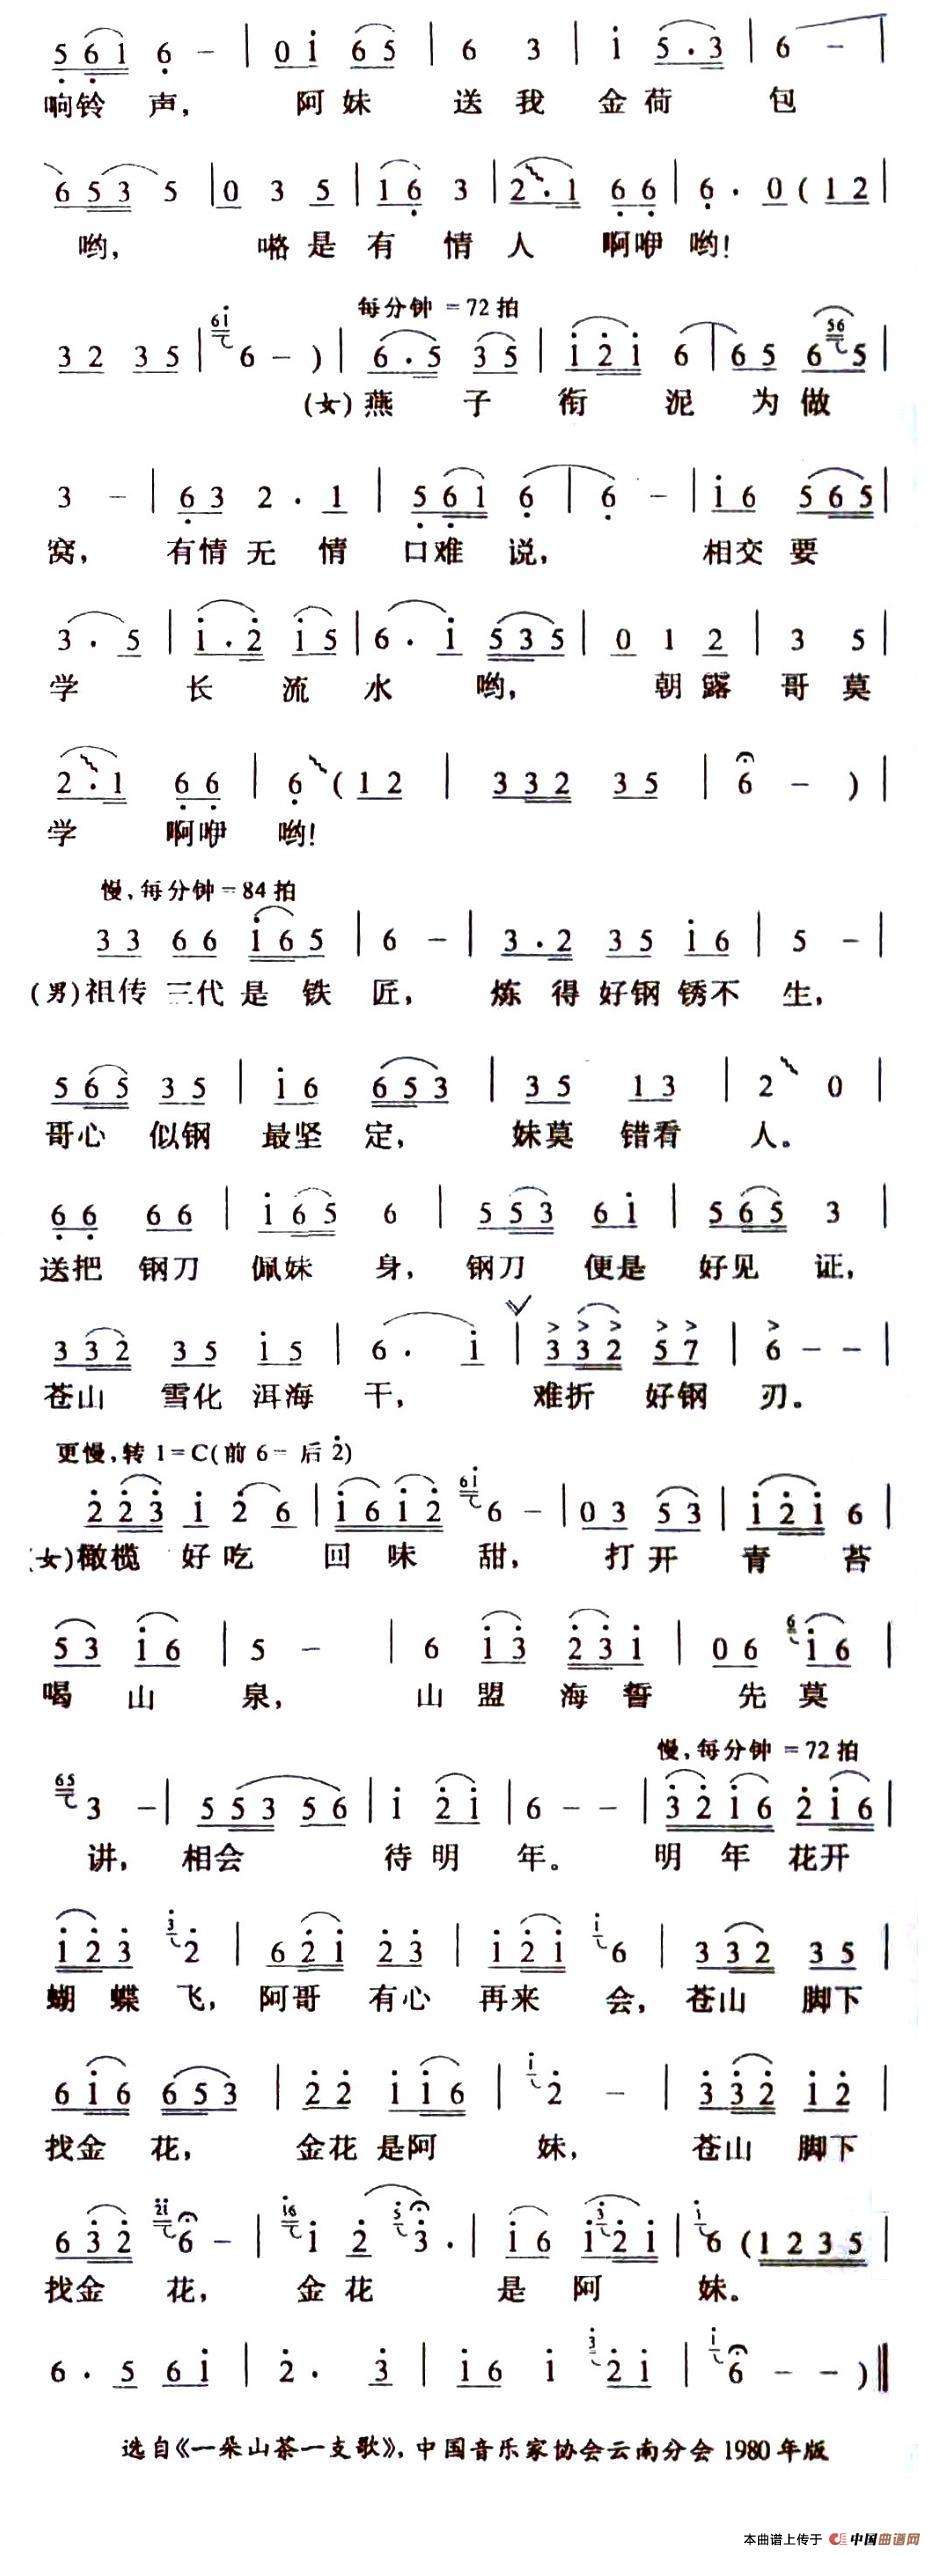 5 6 1 6 - | 0 i 6 5 | 6 3 | i 5 . 3 | 6 - |
响铃 声, 阿妹 送我 金荷 包
6 5 3 5 | 0 3 5 | 1 6 3 | 2 . 1 6 6 | 6 . 0 ( 1 2 |
哟, 咯是有 情人 啊咿哟!
每分钟 = 72 拍
3 2 3 5 | 6i 6 - ) | 6 . 5 3 5 | i 2 i 6 | 6 5 6 56 5 |
(女)燕 子 衔 泥 为做
3 - | 6 3 2 . 1 | 5 6 1 6 | 6 - | i 6 5 6 5 |
窝, 有情无 情 口难 说, 相交 要
3 . 5 | i . 2 i 5 | 6 . i 5 3 5 | 0 1 2 | 3 5 |
学 长 流 水 哟, 朝露 哥莫
2 . 1 6 6 | 6 ( 1 2 | 3 3 2 3 5 | 6 - ) |
学 啊咿 哟!
慢,每分钟=84拍
3 3 6 6 i 6 5 | 6 - | 3 . 2 3 5 i 6 | 5 - |
(男)祖传 三代 是 铁 匠, 炼 得 好钢 锈不 生,
5 6 5 3 5 | i 6 6 5 3 | 3 5 1 3 | 2 0 |
哥心 似钢 最坚 定, 妹莫 错看 人。
6 6 6 6 | i 6 5 6 | 5 5 3 6 i | 5 6 5 3 |
送把 钢刀 佩妹 身, 钢刀 便是 好见 证,
3 3 2 3 5 i 5 | 6 . i | 3 3 2 5 7 | 6 - - |
苍山 雪化 洱海 干, 难折 好钢 刃。
更慢,转 1=C(前 6= 后 2)
2 2 3 i 2 6 | i 6 i 2 6i 6 - | 0 3 5 3 | i 2 i 6 |
(女)橄榄 好吃 回味 甜, 打开 青 苔
5 3 i 6 | 5 - | 6 i 3 2 3 i | 0 6 6 i 6 |
喝 山 泉, 山盟 海誓 先莫
慢,每分钟 =72 拍
65 3 - | 5 5 3 5 6 | i 2 i | 6 - - | 3 2 i 6 2 i 6 |
讲, 相会 待明 年。 明 年 花开
i 2 3 3 2 | 6 2 i 2 3 | i 2 i i 6 | 3 3 2 3 5 |
蝴 蝶 飞, 阿哥 有心 再来 会, 苍山 脚下
6 i 6 6 5 3 | 2 2 i i 6 | i 2 - | 3 3 2 i 2 |
找金 花, 金花 是阿 妹, 苍山 脚下
6 3 2 2i 6 - | i6 i 2 5 3 . | i 6 i 3 2 i | i 6 ( 1 2 3 5 |
找金 花, 金花 是 阿 妹。
6 . 5 6 i | 2 . 3 | i 6 i 3 2 i | i 6 - - ) ‖
选自《一朵山茶一支歌》,中国音乐家协会云南分会 1980 年版
本曲谱上传于 中国曲谱网